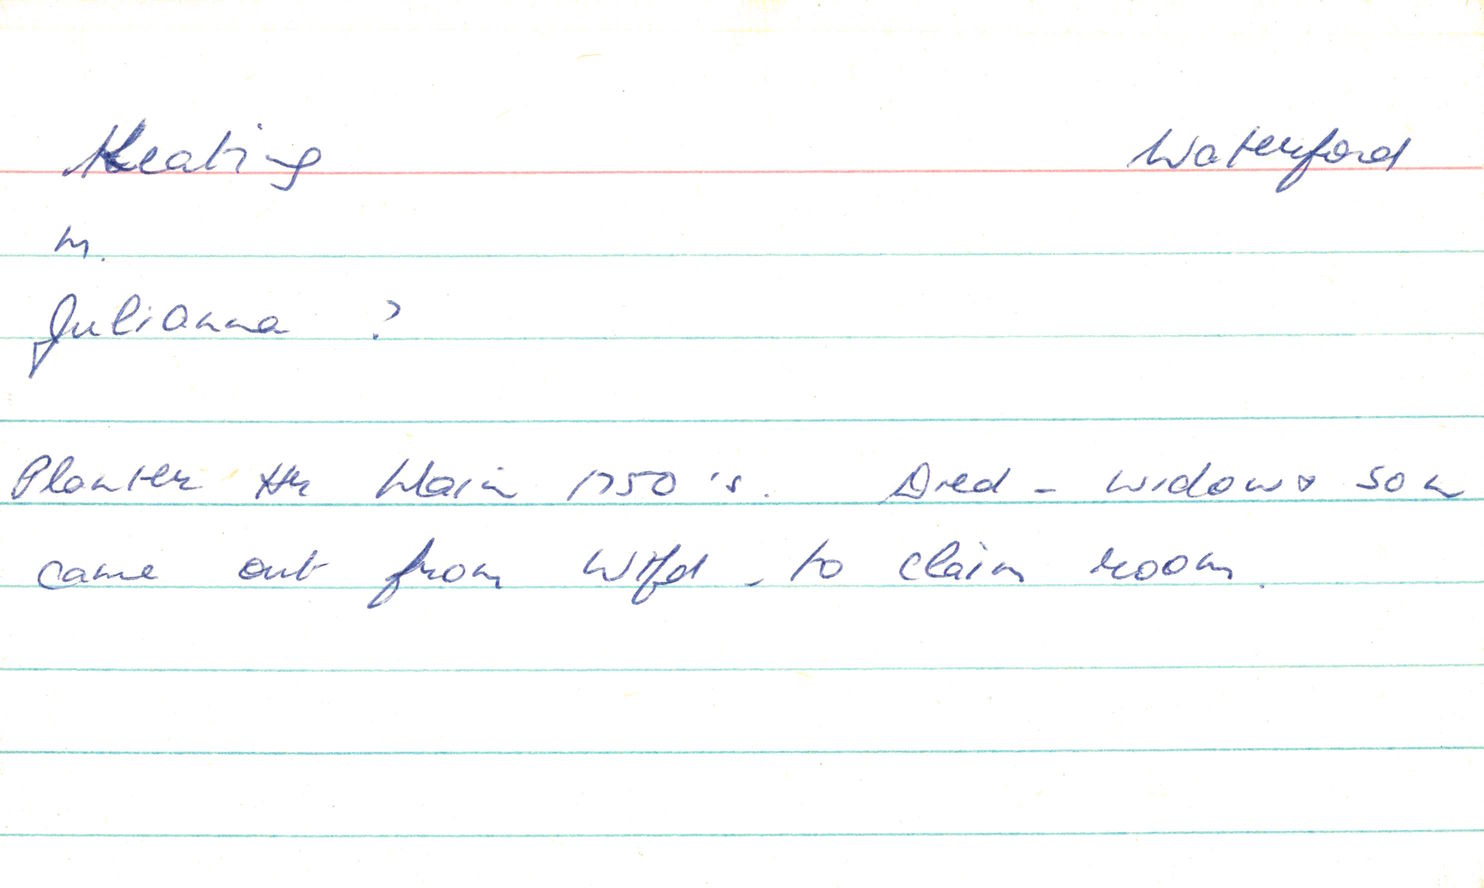 Keating Waterford
m.
Julianna ?
Planter the Main 1750's. Died - widow & son
came out from Wtfd - to claim room.